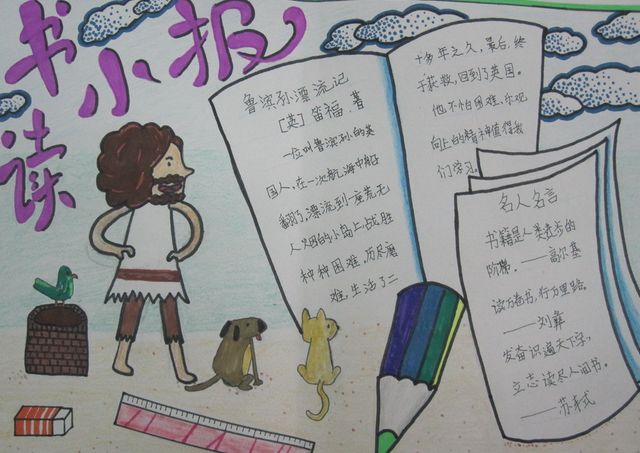 读书小报
鲁滨孙漂流记
[英] 笛福 著
一位叫鲁滨孙的英
国人,在一次航海中船
翻了,漂流到一座荒无
人烟的小岛上,战胜
种种困难,历尽磨
难,生活了二
十多年之久,最后,终
于获救,回到了英国。
他不怕困难,乐观
向上的精神值得我
们学习。
名人名言
书籍是人类进步的
阶梯。——高尔基
读万卷书,行万里路。
——刘彝
发奋识遍天下字,
立志读尽人间书。
——苏轼